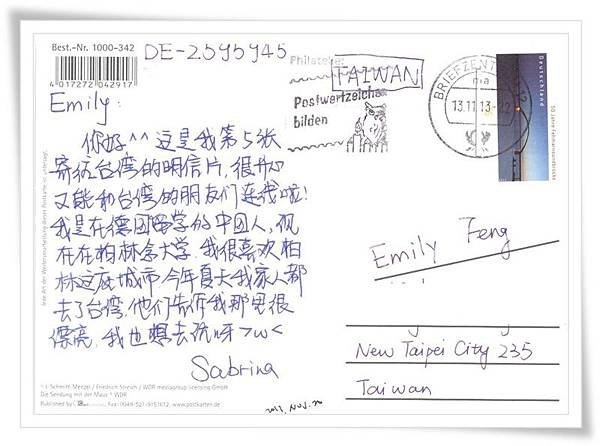 Best.-Nr. 1000-342
4 017272 042917
DE-2595945
Philatelie:
TAIWAN
Postwertzeiche
bilden
BRIEFZENTRUM
13.11.13-22
Deutschland
50 Jahre Fehmarnsundbrücke
Emily:
你好^^ 这是我第5张
寄往台湾的明信片,很开心
又能和台湾的朋友们连我啦!
我是在德国留学的中国人,现
在在柏林念大学.我很喜欢柏
林这座城市.今年夏天我家人都
去了台湾,他们告诉我那里很
漂亮,我也想去玩呀>w<
Sabrina
Emily Feng
New Taipei City 235
Taiwan
Jede Art der Weiterverarbeitung dieser Postkarte ist untersagt.
© I. Schmitt-Menzel / Friedrich Streich / WDR mediagroup licensing GmbH
Die Sendung mit der Maus ® WDR
Published by
Fax: 0049-521-9151612, www.postkarten.de